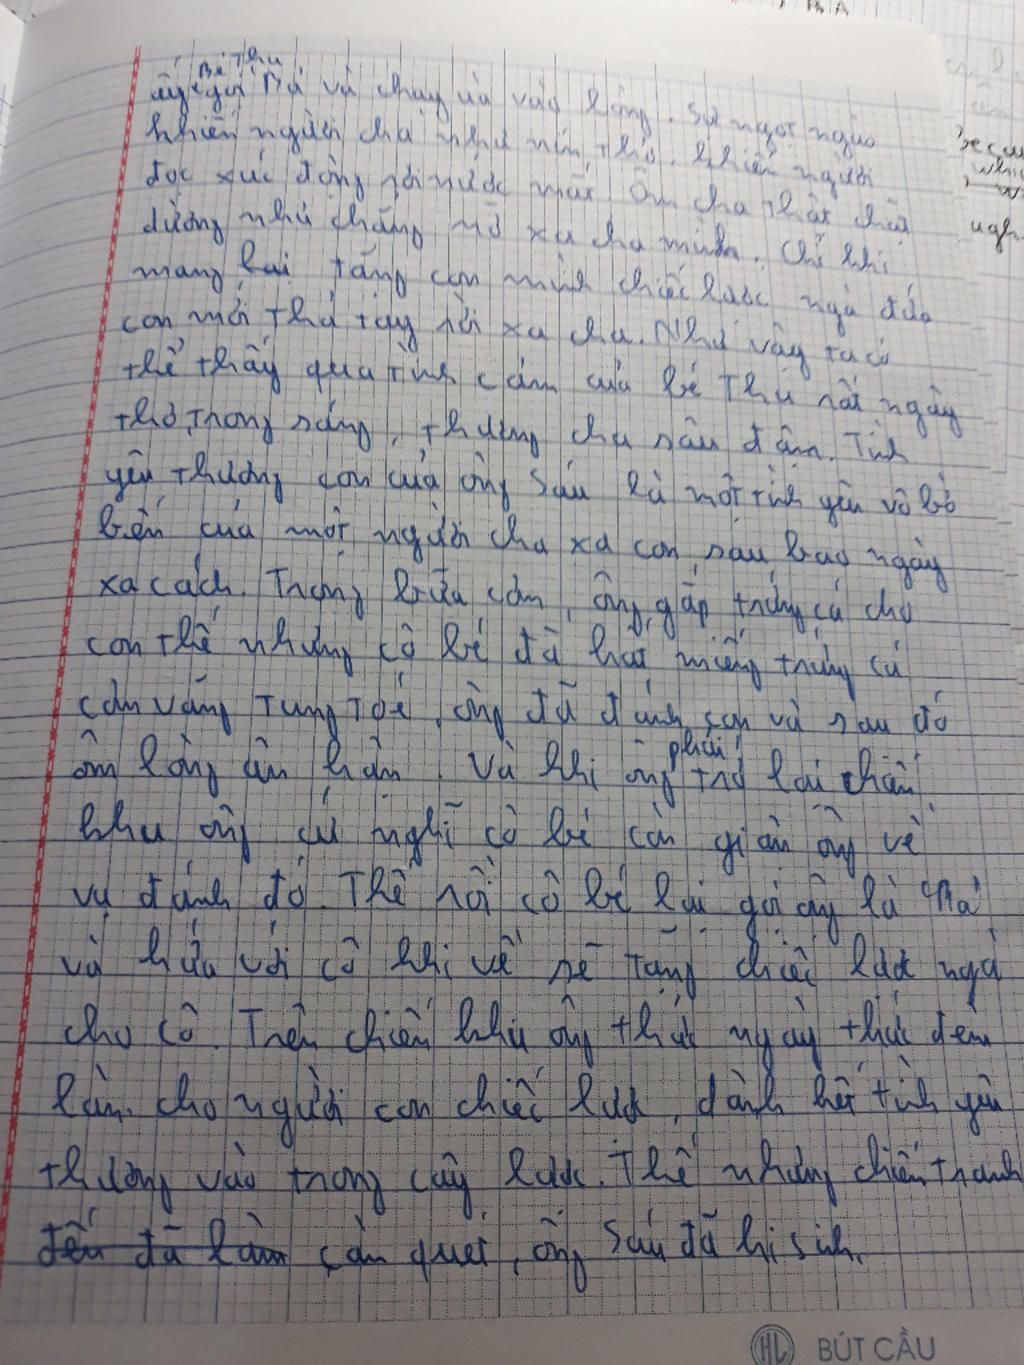 Bé Thu
ấy gọi Bá và chạy ùa vào lòng. Sự ngọt ngào
khiến người cha như nín thở, khiến người
đọc xúc động rơi nước mắt. Ôm cha thật chặt
dường như chẳng nỡ xa cha mình. Chỉ khi
mang lại tặng con mình chiếc lược ngà đứa
con mới thả tay rời xa cha. Như vậy ta có
thể thấy qua tình cảm của bé Thu rất ngây
thơ, trong sáng, thương cha sâu đậm. Tình
yêu thương con của ông Sáu là một tình yêu vô bờ
bến của một người cha xa con sau bao ngày
xa cách. Trong bữa cơm, ông gắp trứng cá cho
con thế nhưng cô bé đã hất miếng trứng cá
cơm văng tung toé, ông đã đánh con và sau đó
ôm lòng ân hận. Và khi ông phải trở lại chiến
khu ông cứ nghĩ cô bé còn giận ông về
vụ đánh đó. Thế rồi cô bé lại gọi ông là "Ba"
và hứa với cô khi về sẽ tặng chiếc lược ngà
cho cô. Trên chiến khu ông thức ngày thức đêm
làm cho người con chiếc lược, dành hết tình yêu
thương vào trong cây lược. Thế nhưng chiến tranh
đến đã làm càn quét, ông Sáu đã hi sinh.
HL BÚT CẦU